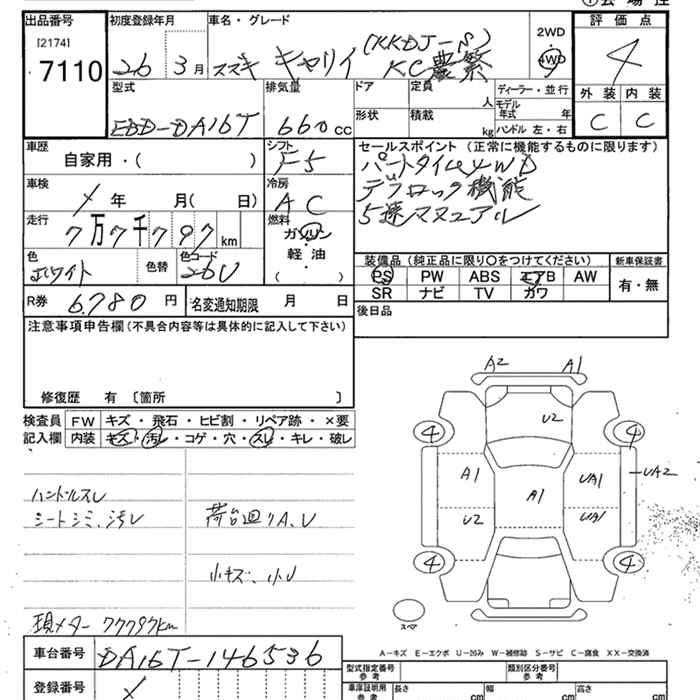 ①会場控
出品番号 初度登録年月 車名・グレード 2WD 評価点
[2174] 7110 26 3月 スズキ キャリイ (KKDJ-S) KC農繁 4WD 4
型式 排気量 ドア 定員 人 ディーラー・並行 外装 内装
EBD-DA16T 660cc 形状 積載 kg モデル年式 年 ハンドル 左・右 C C
車歴 シフト セールスポイント (正常に機能するものに限ります)
自家用・( ) F5 パートタイム4WD
車検 冷房 デフロック機能
年 月( 日) AC 5速マニュアル
走行 燃料
7万7千797km ガソリン
色 色替 色コード 軽油 装備品(純正品に限り○をつけてください) 新車保証書
ホワイト 26U ( ) PS PW ABS エアB AW 有・無
R券 6.780円 名変通知期限 月 日 SR ナビ TV カワ
注意事項申告欄(不具合内容等は具体的に記入して下さい) 後日品
修復歴 有 〔箇所 〕
検査員 FW キズ・飛石・ヒビ割・リペア跡・×要
記入欄 内装 キズ・汚レ・コゲ・穴・スレ・キレ・破レ
A2 A1
U2
4 4
A1 A1 UA1 UA2
U2 UA1
4 4
スペア
ハンドルスレ
シートシミ、汚レ 荷台廻りA、U
小キズ、小U
現メーター 77797km
A-キズ E-エクボ U-凹み W-補修跡 S-サビ C-腐食 XX-交換済
車台番号 DA16T-146536
型式指定番号 参考 類別区分番号 参考
登録番号
車庫証明用 参考 長さ cm 幅 cm 高さ cm